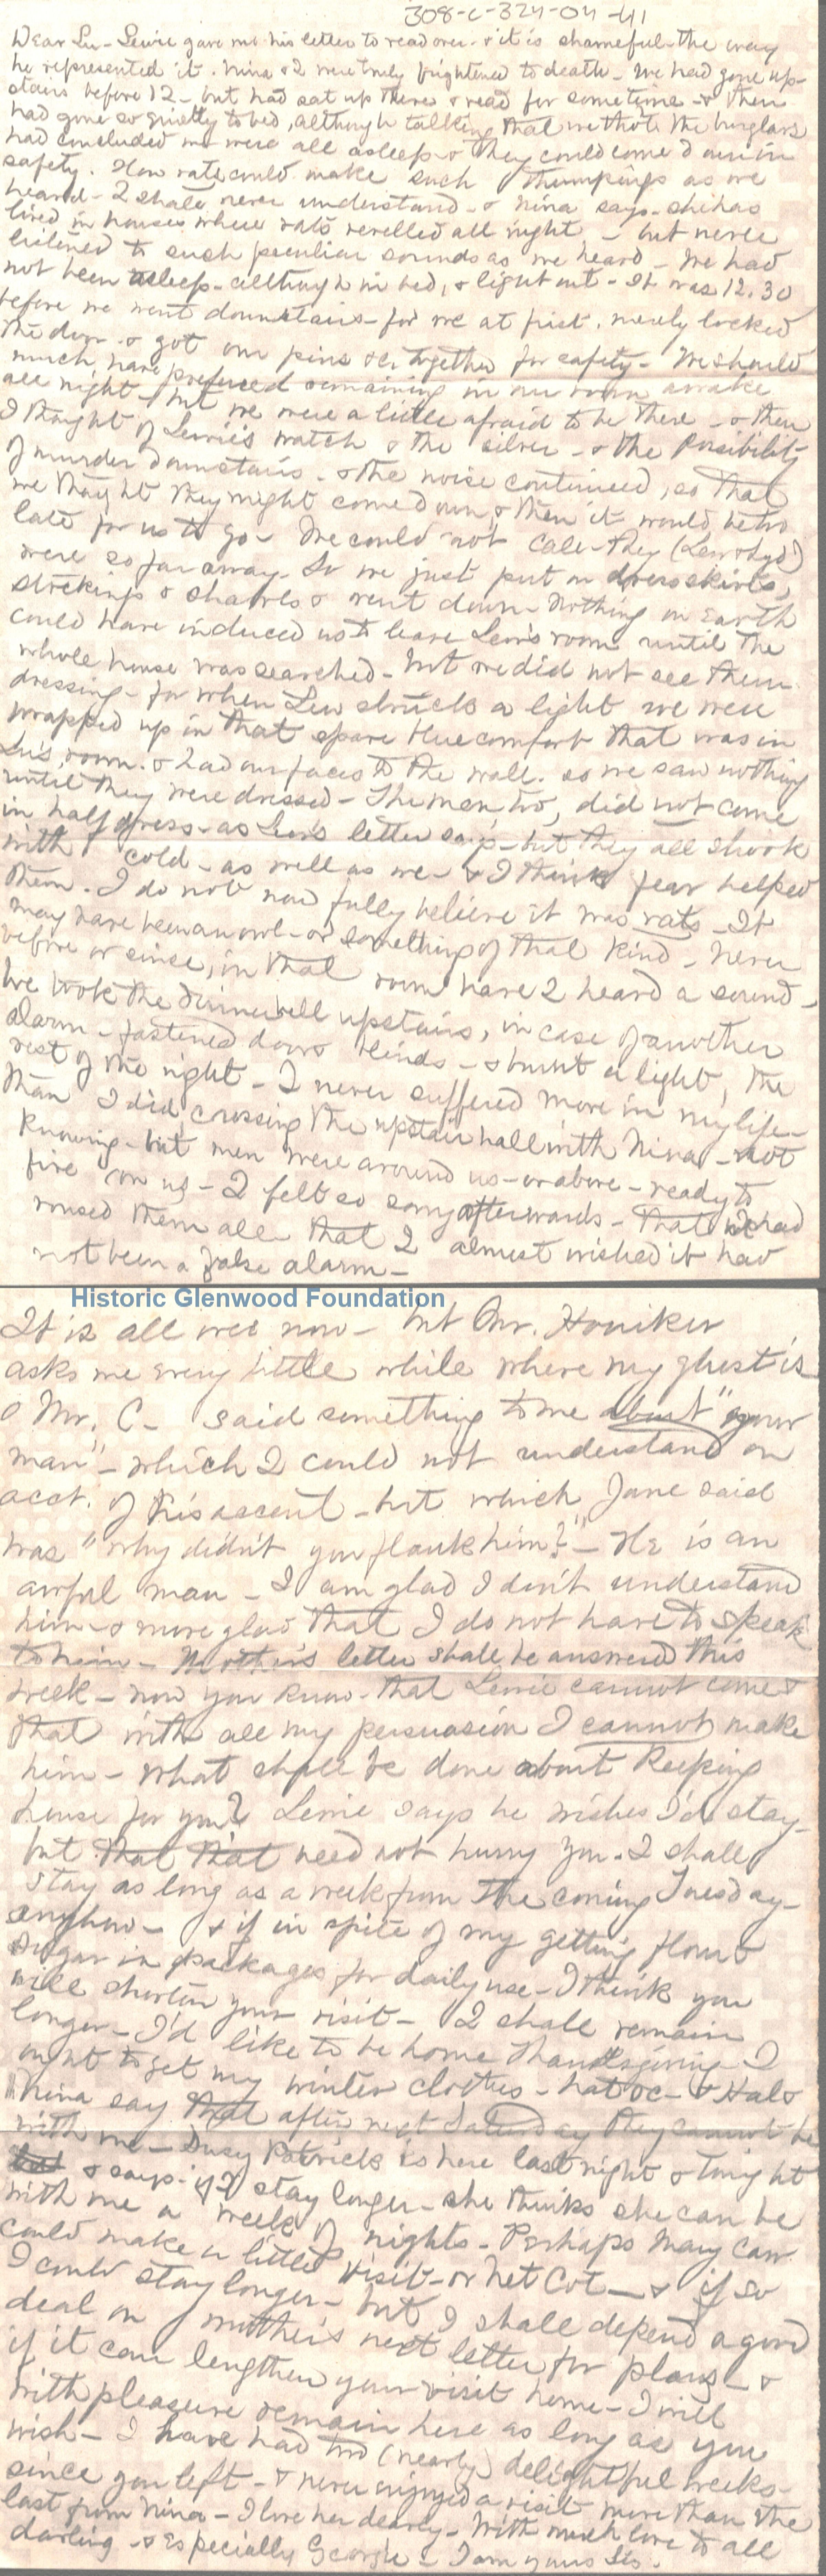 308-c-324-04-41
Dear Lu - Lewie gave me his letter to read over - & it is shameful - the way
he represented it. Nina & I were truly frightened to death - We had gone up-
stairs before 12 - but had sat up there & read for some time - & then
had gone so quietly to bed, although talking, that we thot the burglars
had concluded we were all asleep & they could come down in
safety. How rats could make such thumpings as we
heard - I shall never understand - & Nina says - she has
lived in houses where rats revelled all night - but never
listened to such peculiar sounds as we heard - We had
not been asleep - although in bed, & light out - It was 12.30
before we went downstairs - for we at first, merely locked
the door & got our pins &c together for safety - We should
much have preferred remaining in our room awake
all night - but we were a little afraid to be there - & then
I thought of Lewie's watch & the silver - & the possibility
of murder downstairs - & the noise continued, so that
we thought they might come down & then it would be too
late for us to go - We could not call - they (Lew & Lyd)
were so far away - So we just put on dress skirts,
stockings & shawls & went down - Nothing on Earth
could have induced us to leave Lew's room until the
whole house was searched - but we did not see them
dressing - for when Lew struck a light we were
wrapped up in that spare blue comfort that was in
Lu's room & had our faces to the wall. so we saw nothing
until they were dressed - The men too, did not come
in half dress - as Lew's letter says - but they all shook
with cold - as well as we - & I think fear helped
them. I do not now fully believe it was rats - It
may have been an owl - or something of that kind - Never
before or since, in that room have I heard a sound -
We took the dinner bell upstairs, in case of another
alarm - fastened doors blinds - & burnt a light, the
rest of the night - I never suffered more in my life -
than I did crossing the upstair hall with Nina - not
knowing - but men were around us - or above - ready to
fire on us - I felt so sorry afterwards - that I had
roused them all that I almost wished it had
not been a false alarm -
Historic Glenwood Foundation
It is all over now - but Mr. Honiker
asks me every little while where my ghost is
& Mr. C - said something to me about "your
man" - which I could not understand on
acct. of his accent - but which Jane said
was "why didn't you flank him?" - He is an
awful man - I am glad I don't understand
him - & more glad that I do not have to speak
to him - Mother's letter shall be answered this
week - now you know that Lewie cannot come &
that with all my persuasion I cannot make
him - What shall be done about keeping
house for you? Lewie says he wishes I'd stay -
but that that need not hurry you. I shall
stay as long as a week from the coming Tuesday -
anyhow - & if in spite of my getting flour &
sugar in packages for daily use - I think you
will shorten your visit - I shall remain
longer - I'd like to be home Thanksgiving - I
ought to get my winter clothes - hat &c - & Hal &
Nina say that after next Saturday they cannot be
with me - Susy Patrick is here last night & tonight
& says if I stay longer - she thinks she can be
with me a week of nights - Perhaps Mary Caw
could make a little visit - or Net Cot - & if so
I could stay longer - but I shall depend a good
deal on mother's next letter for plans - &
if it can lengthen your visit home - I will
with pleasure remain here as long as you
wish - I have had two (nearly) delightful weeks -
since you left - & never enjoyed a visit more than the
last from Nina - I love her dearly - With much love to all
darling - & Especially Georgie - I am yours Sis.